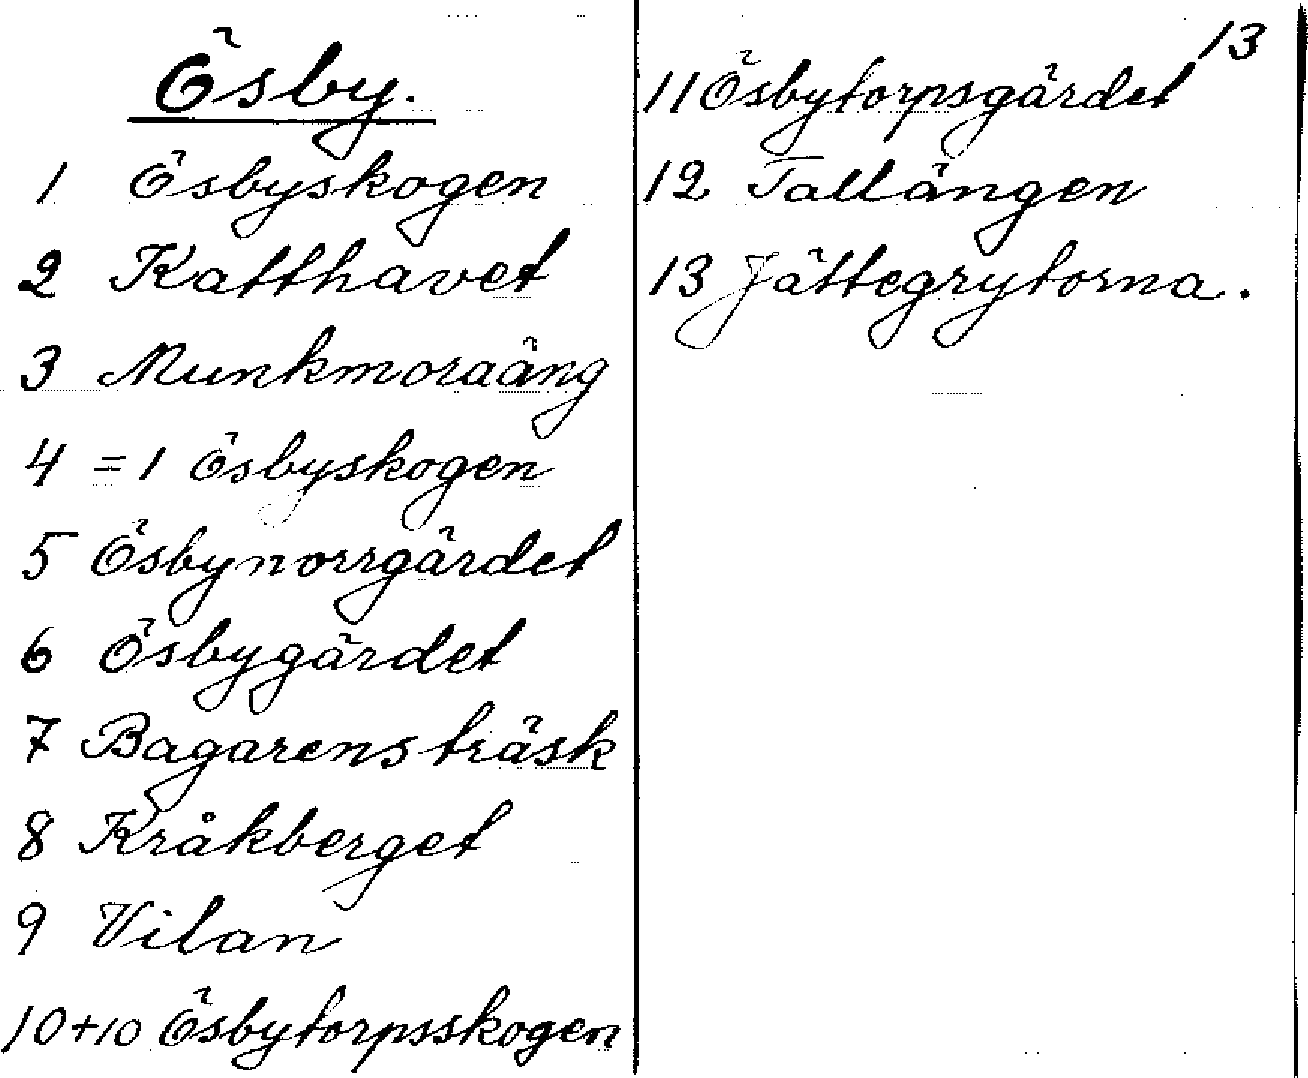 Ösby.
1 Ösbyskogen
2 Katthavet
3 Munkmoraäng
4 = 1 Ösbyskogen
5 Ösbynorrgärdet
6 Ösbygärdet
7 Bagarensträsk
8 Kråkberget
9 Vilan
10+10 Ösbytorpsskogen
13
11 Ösbytorpsgärdet
12 Tallängen
13 Jättegrytorna.